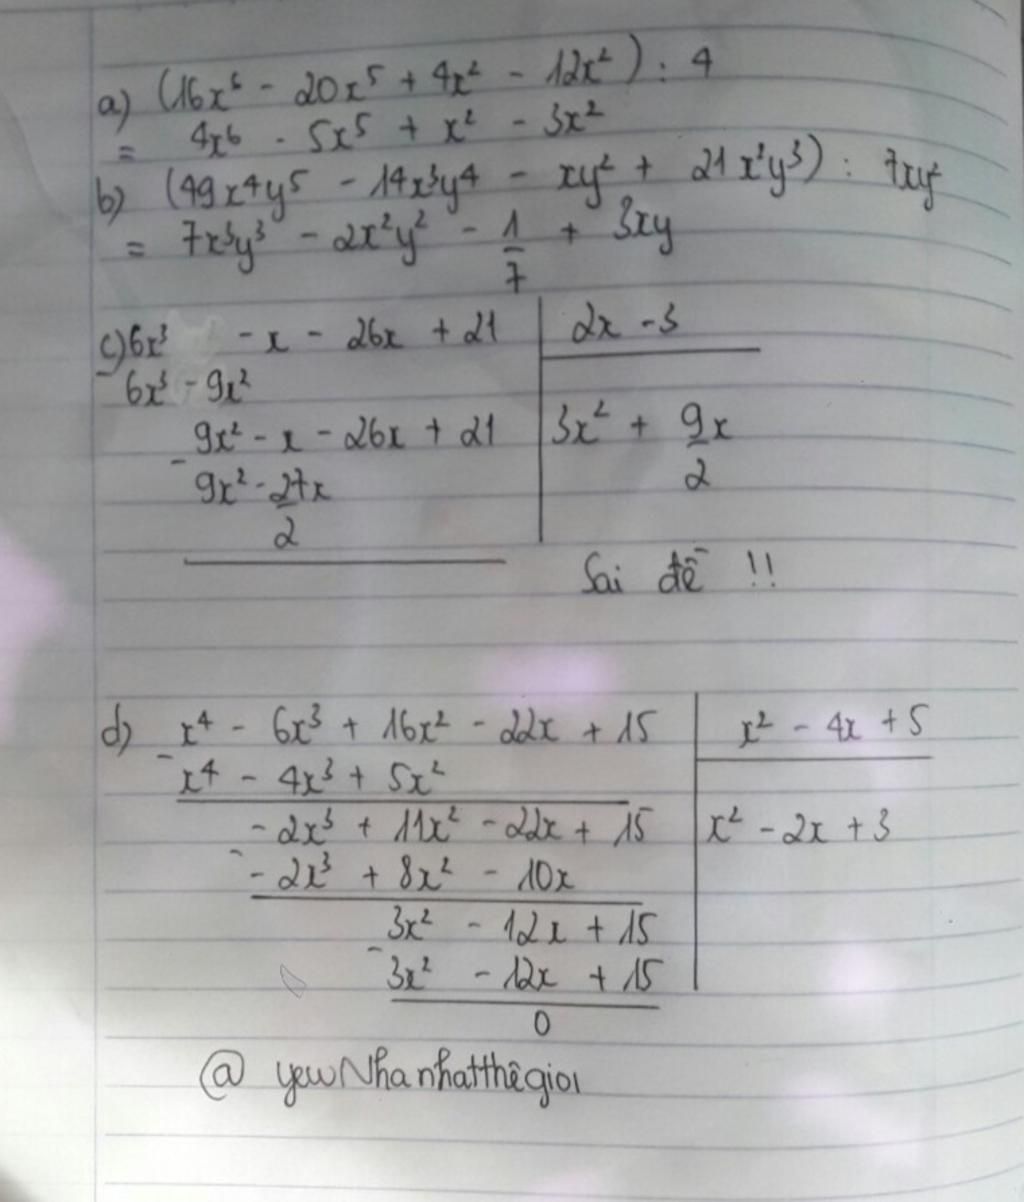 a) (16x⁶ - 20x⁵ + 4x² - 12x²) : 4
= 4x⁶ - 5x⁵ + x² - 3x²
b) (49x⁴y⁵ - 14x³y⁴ - xy² + 21x²y³) : 7xy²
= 7x³y³ - 2x²y² - 1/7 + 3xy
c) 6x³ - x - 26x + 21 | 2x - 3
- 6x³ - 9x²
9x² - x - 26x + 21 | 3x² + 9x/2
- 9x² - 27x/2
Sai đề !!
d) x⁴ - 6x³ + 16x² - 22x + 15 | x² - 4x + 5
- x⁴ - 4x³ + 5x²
- 2x³ + 11x² - 22x + 15 | x² - 2x + 3
- - 2x³ + 8x² - 10x
3x² - 12x + 15
- 3x² - 12x + 15
0
@ yewNhanhatthêgioi